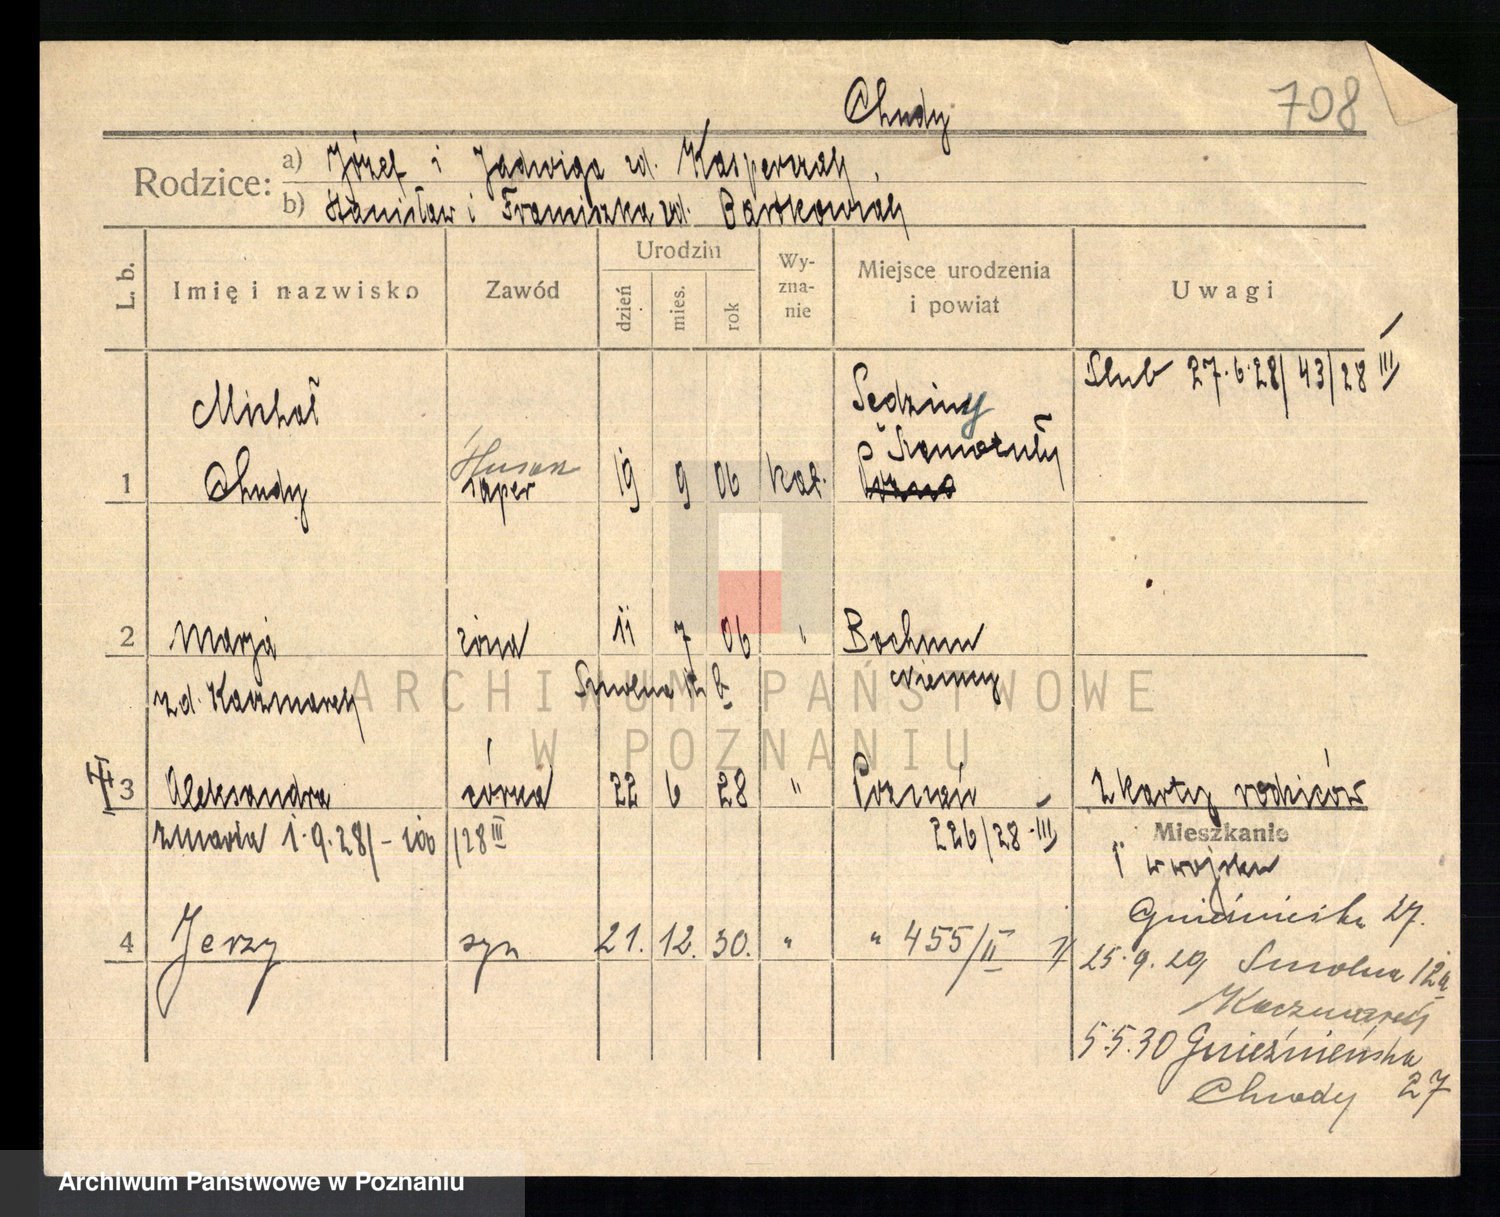 708
Chudy
Rodzice: a) Józef i Jadwiga zd. Kasperczak
b) Stanisław i Franciszka zd. Bartkowiak
L. b. Imię i nazwisko Zawód Urodzin dzień mies. rok Wy-zna-nie Miejsce urodzenia i powiat Uwagi
Ślub 27.6.28/43/28 III
Michał Sędziny
Szamotuły
1 Chudy saper 19 9 06 kat.
2 Marja żona 11 7 06 " Bochum
zd. Kaczmarek Smolna Niemcy
3 Aleksandra córka 22 6 28 " Poznań z karty rodziców
zmarła 1.9.28/- 100/28 III 226/28 III
Mieszkanie
w wojsku
Gnieźnieńska 27.
4 Jerzy syn 21. 12. 30. " " 455/II
25.9.29 Smolna 12a
Kaczmarek
5.5.30 Gnieźnieńska
Chudy 27
ARCHIWUM PAŃSTWOWE
W POZNANIU
Archiwum Państwowe w Poznaniu